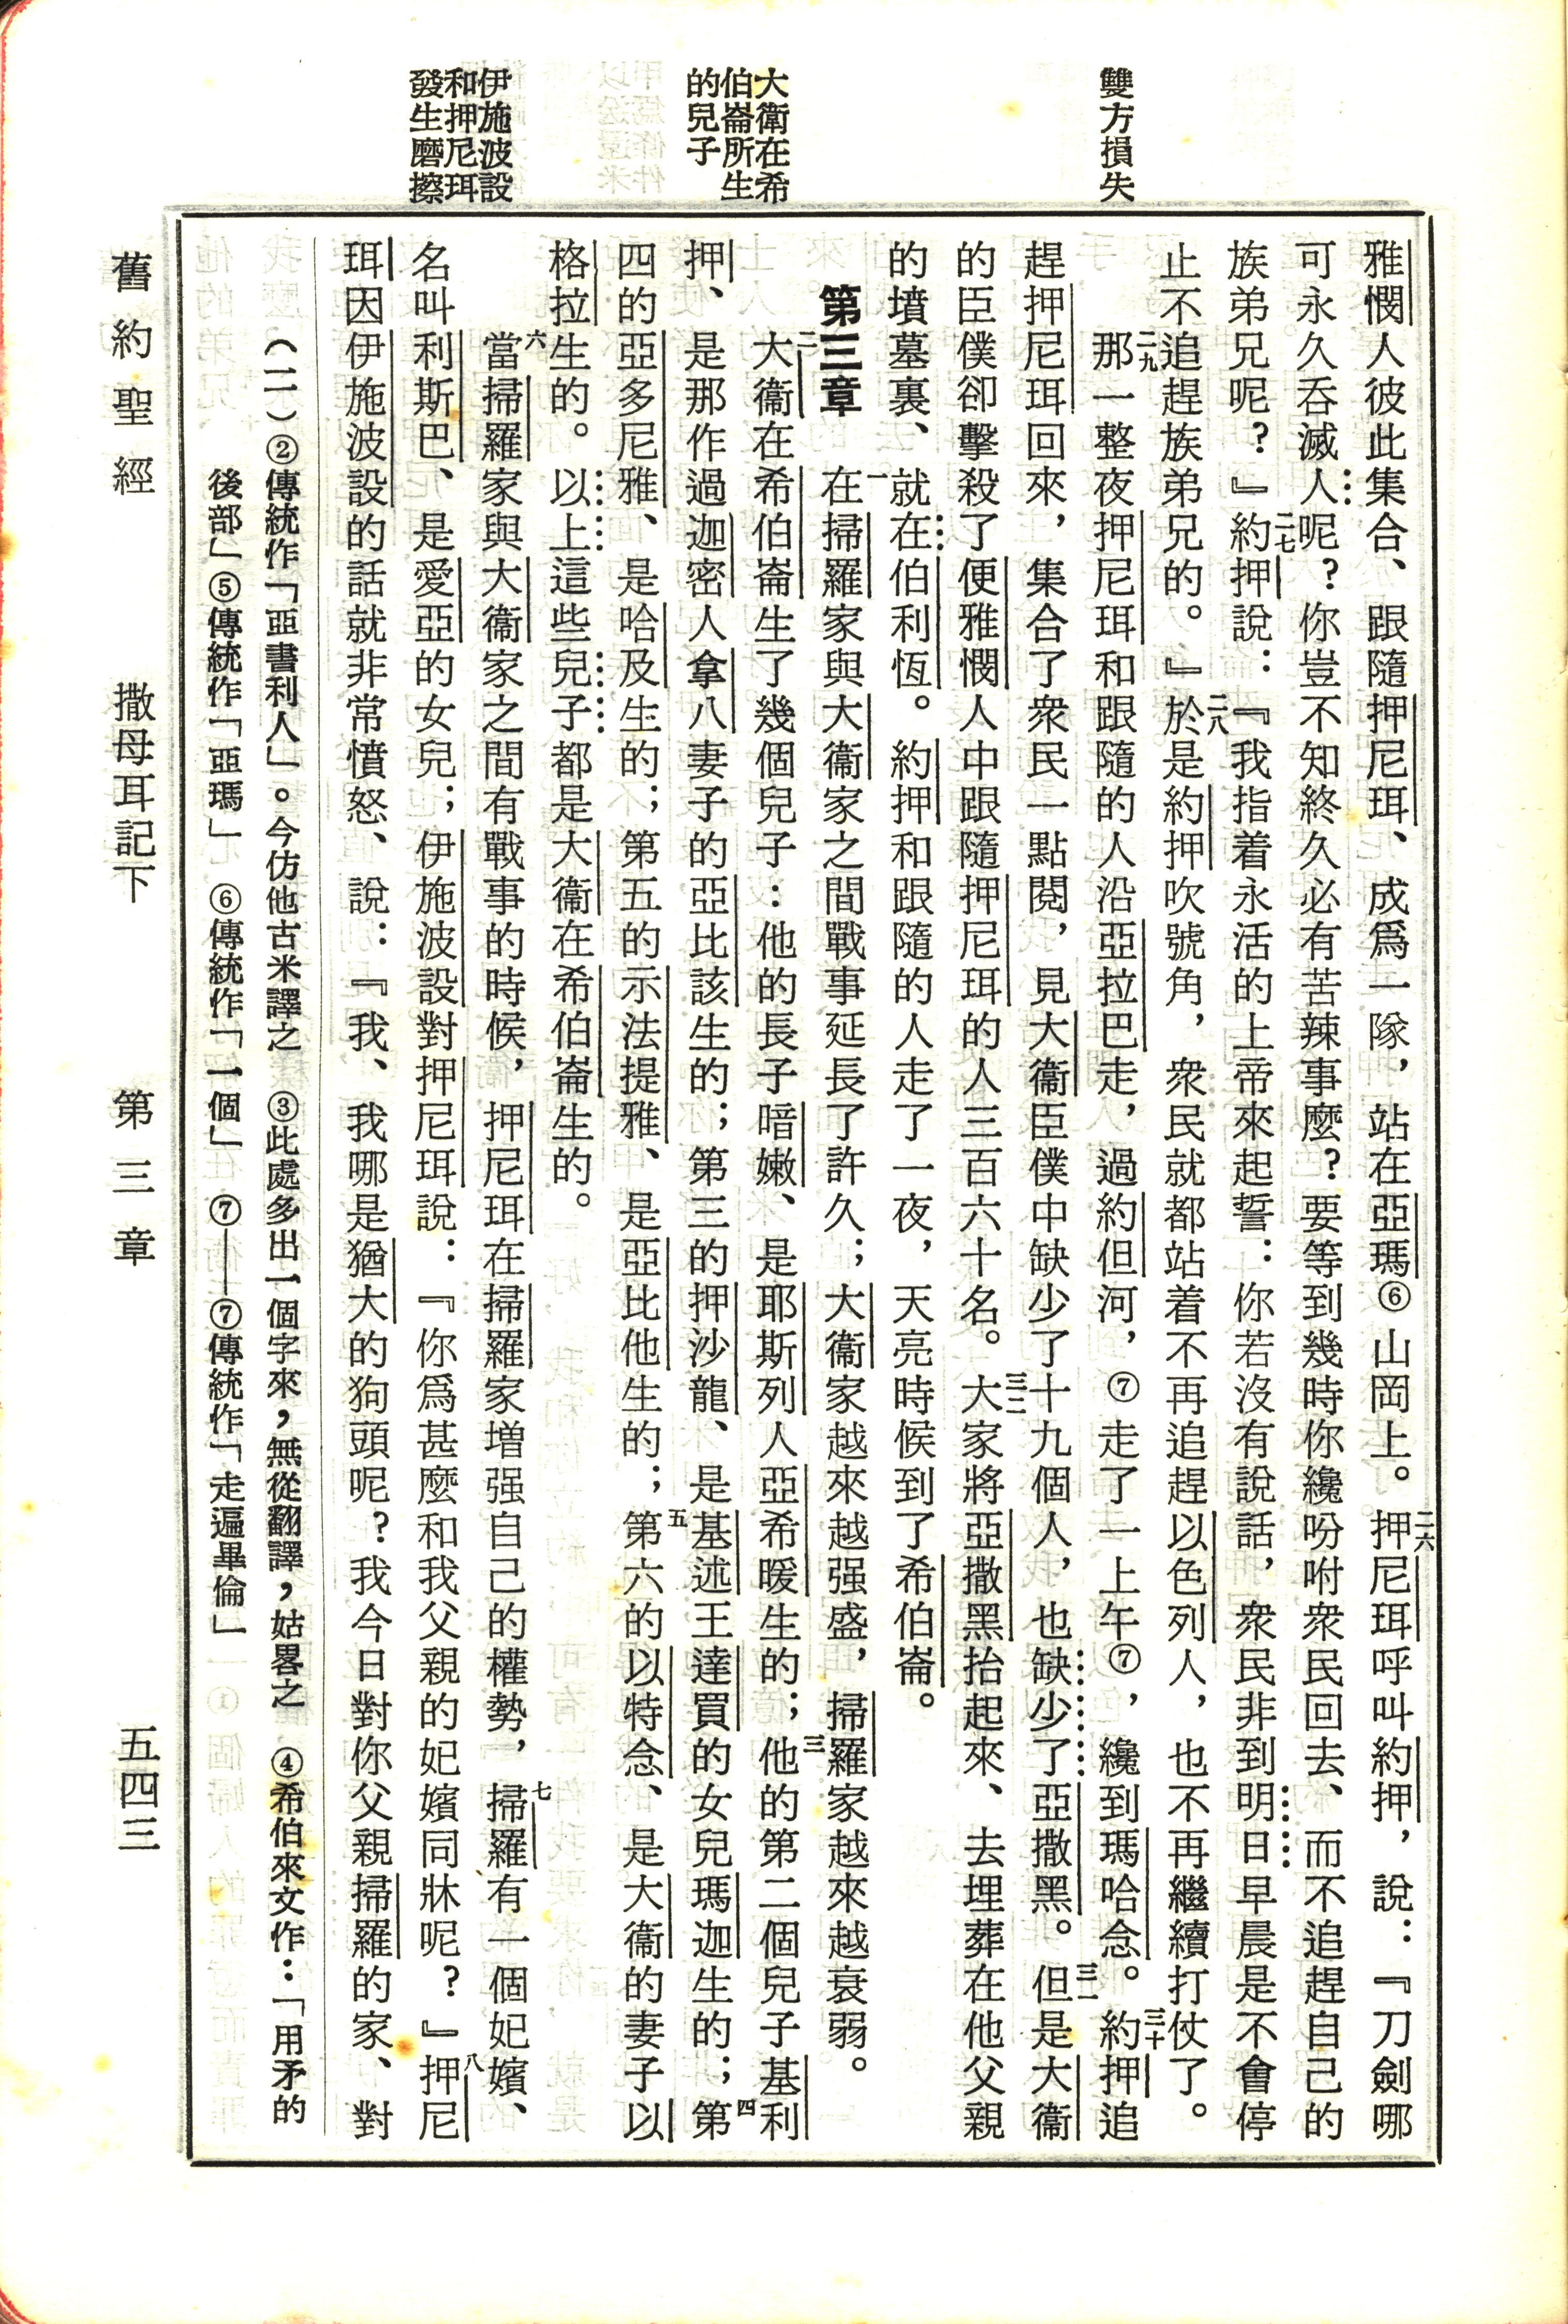 雙方損失
大衞在希
伯崙所生
的兒子
伊施波設
和押尼珥
發生磨擦
雅憫人彼此集合、跟隨押尼珥、成爲一隊，站在亞瑪⑥山岡上。二六押尼珥呼叫約押，說：『刀劍哪
可永久吞滅人呢？你豈不知終久必有苦辣事麼？要等到幾時你纔吩咐衆民回去、而不追趕自己的
族弟兄呢？』二七約押說：『我指着永活的上帝來起誓：你若沒有說話，衆民非到明日早晨是不會停
止不追趕族弟兄的。』二八於是約押吹號角，衆民就都站着不再追趕以色列人，也不再繼續打仗了。
二九那一整夜押尼珥和跟隨的人沿亞拉巴走，過約但河，⑦走了一上午⑦，纔到瑪哈念。三十約押追
趕押尼珥回來，集合了衆民一點閱，見大衞臣僕中缺少了十九個人，也缺少了亞撒黑。三一但是大衞
的臣僕卻擊殺了便雅憫人中跟隨押尼珥的人三百六十名。三二大家將亞撒黑抬起來、去埋葬在他父親
的墳墓裏、就在伯利恆。約押和跟隨的人走了一夜，天亮時候到了希伯崙。
第三章　一在掃羅家與大衞家之間戰事延長了許久；大衞家越來越强盛，掃羅家越來越衰弱。
二大衞在希伯崙生了幾個兒子：他的長子喑嫩、是耶斯列人亞希暖生的；三他的第二個兒子基利
押、是那作過迦密人拿八妻子的亞比該生的；第三的押沙龍、是基述王達買的女兒瑪迦生的；四第
四的亞多尼雅、是哈及生的；第五的示法提雅、是亞比他生的；五第六的以特念、是大衞的妻子以
格拉生的。以上這些兒子都是大衞在希伯崙生的。
六當掃羅家與大衞家之間有戰事的時候，押尼珥在掃羅家增强自己的權勢，七掃羅有一個妃嬪、
名叫利斯巴、是愛亞的女兒；伊施波設對押尼珥說：『你爲甚麼和我父親的妃嬪同牀呢？』八押尼
珥因伊施波設的話就非常憤怒、說：『我、我哪是猶大的狗頭呢？我今日對你父親掃羅的家、對
（二）②傳統作「亞書利人」。今仿他古米譯之　③此處多出一個字來，無從翻譯，姑畧之　④希伯來文作：「用矛的
後部」⑤傳統作「亞瑪」　⑥傳統作「一個」　⑦——⑦傳統作「走遍畢倫」
舊約聖經　撒母耳記下　第三章　五四三